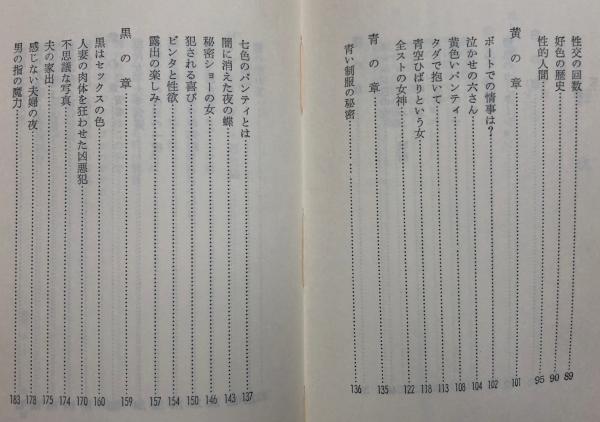 性交の回数……89
好色の歴史……90
性的人間……95
黄の章……101
ボートでの情事は?……102
泣かせの六さん……104
黄色いパンティ……108
タダで抱いて……113
青空ひばりという女……118
全ストの女神……122
青の章……135
青い制服の秘密……136
七色のパンティとは……137
闇に消えた夜の蝶……143
秘密ショーの女……146
犯される喜び……150
ビンタと性欲……154
露出の楽しみ……157
黒の章……159
黒はセックスの色……160
人妻の肉体を狂わせた凶悪犯……170
不思議な写真……174
夫の家出……175
感じない夫婦の夜……178
男の指の魔力……183